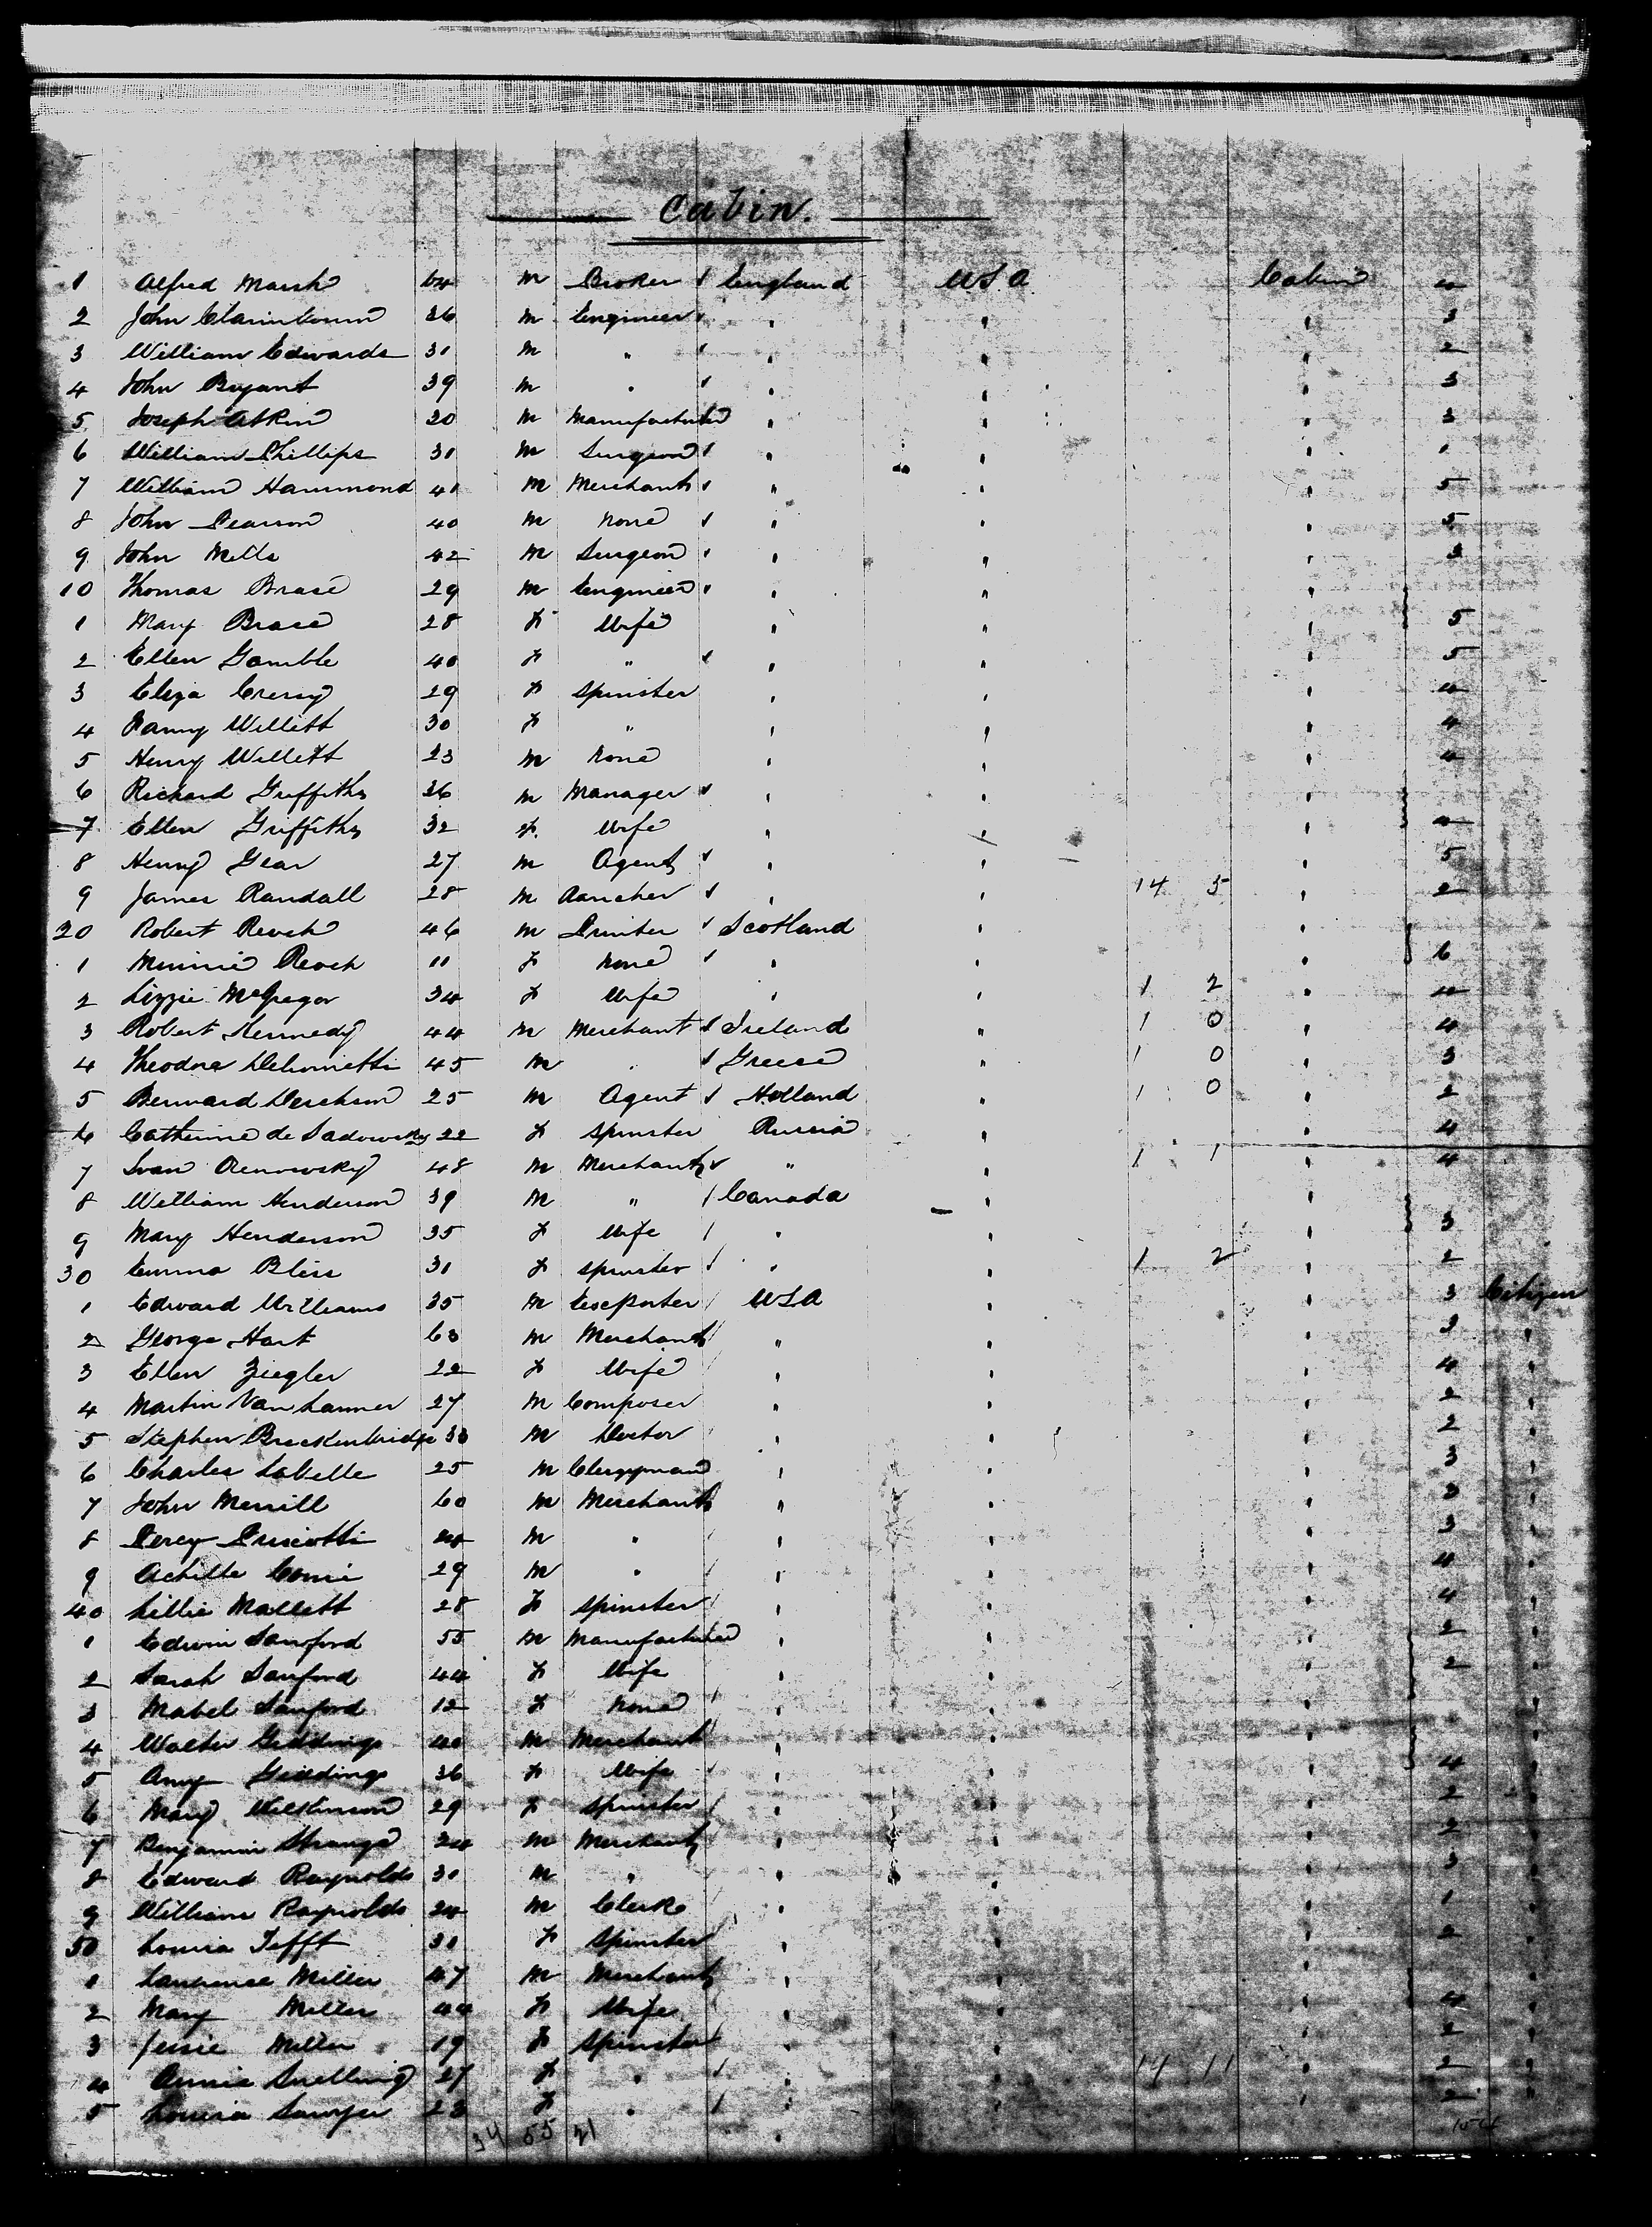 Cabin.
1 Alfred Marsh 64 M Broker England USA Cabin 4
2 John 26 M Engineer " " " 3
3 William Edwards 31 M " " " " 2
4 John Bryant 39 M " " " " 3
5 Joseph Atkin 20 M Manufacturer " " " 3
6 William Phillips 31 M Surgeon " " " 1
7 William Hammond 41 M Merchant " " " 5
8 John Pearson 40 M None " " " 5
9 John Mills 42 M Surgeon " " " 3
10 Thomas Brace 29 M Engineer " " "
1 Mary Brace 28 F Wife " " " 5
2 Ellen Gamble 40 F " " " " 5
3 Eliza Cressy 29 F Spinster " " " 4
4 Fanny Willett 30 F " " " " 4
5 Henry Willett 23 M None " " " 4
6 Richard Griffiths 36 M Manager " " "
7 Ellen Griffiths 32 F Wife " " " 4
8 Henry Gear 27 M Agent " " " 5
9 James Randall 28 M Rancher " " 14 5 " 2
20 Robert Reoch 46 M Printer Scotland " "
1 Minnie Reoch 11 F None " " " 6
2 Lizzie McGregor 34 F Wife " " 1 2 " 4
3 Robert Kennedy 44 M Merchant Ireland " 1 0 " 4
4 Theodore 45 M " Greece " 1 0 " 3
5 Bernard 25 M Agent Holland " 1 0 " 2
6 Catherine de Sadowsky 22 F Spinster Russia " " 4
7 Ivan 48 M Merchant " " 1 1 " 4
8 William Henderson 39 M " Canada " "
9 Mary Henderson 35 F Wife " " " 3
30 Emma Bliss 31 F Spinster " " 1 2 " 2
1 Edward Williams 35 M Exporter USA " " 3 Citizen
2 George Hart 63 M Merchant " " " 3 "
3 Ellen Ziegler 22 F Wife " " " 4 "
4 Martin Van Lanner 27 M Composer " " " 2 "
5 Stephen Breckenbridge 33 M Doctor " " " 2 "
6 Charles LaBelle 25 M Clergyman " " " 3 "
7 John Merrill 60 M Merchant " " " 3 "
8 Percy 24 M " " " " 3 "
9 Achille 29 M " " " " 4 "
40 Lillie Mallett 28 F Spinster " " " 4 "
1 Edwin Sanford 55 M Manufacturer " " " 2 "
2 Sarah Sanford 44 F Wife " " " 2 "
3 Mabel Sanford 12 F None " " " "
4 Walter Giddings 40 M Merchant " " " "
5 Amy Giddings 36 F Wife " " " 4 "
6 Mary Wilkinson 29 F Spinster " " " 2 "
7 Benjamin Strange 24 M Merchant " " " 2 "
8 Edward Raynolds 30 M " " " " 3 "
9 William Raynolds 24 M Clerk " " " 1 "
50 Louisa Tefft 31 F Spinster " " " 2 "
1 Laurence Miller 47 M Merchant " " " "
2 Mary Miller 44 F Wife " " " 4 "
3 Jessie Miller 19 F Spinster " " " 2 "
4 Annie Snelling 27 F " " " 14 11 " 2 "
5 Louisa Sawyer 23 F " " " " 2 "
34 55 21 154